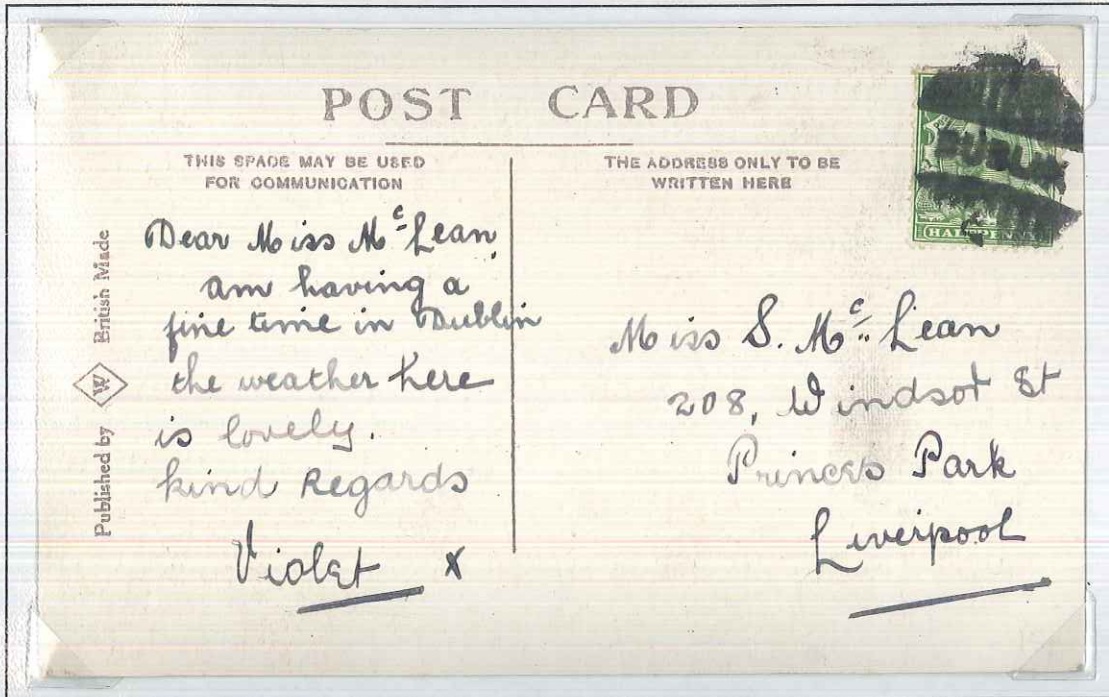 POST CARD
THIS SPACE MAY BE USED
FOR COMMUNICATION
THE ADDRESS ONLY TO BE
WRITTEN HERE
Published by W British Made
Dear Miss Mc Lean
am having a
fine time in Dublin
the weather here
is lovely.
kind Regards
Violet x
Miss S. Mc Lean
208, Windsor St
Princes Park
Liverpool
DUBLIN
HALFPENNY